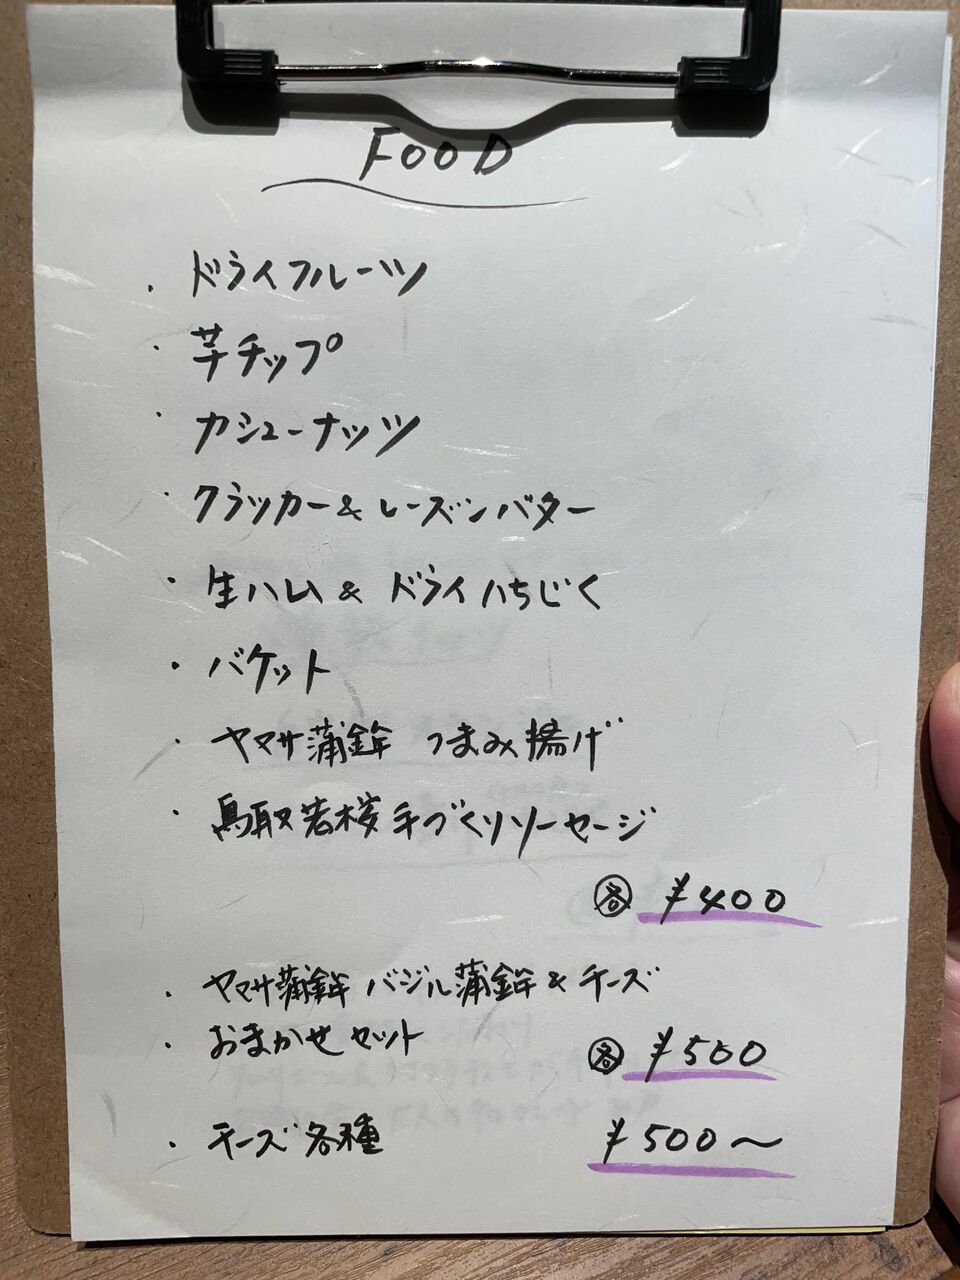 FOOD
・ドライフルーツ
・芋チップ
・カシューナッツ
・クラッカー&レーズンバター
・生ハム&ドライいちじく
・バケット
・ヤマサ蒲鉾 つまみ揚げ
・鳥取若桜手づくりソーセージ
各 ¥400
・ヤマサ蒲鉾 バジル蒲鉾&チーズ
・おまかせセット
各 ¥500
・チーズ各種 ¥500〜